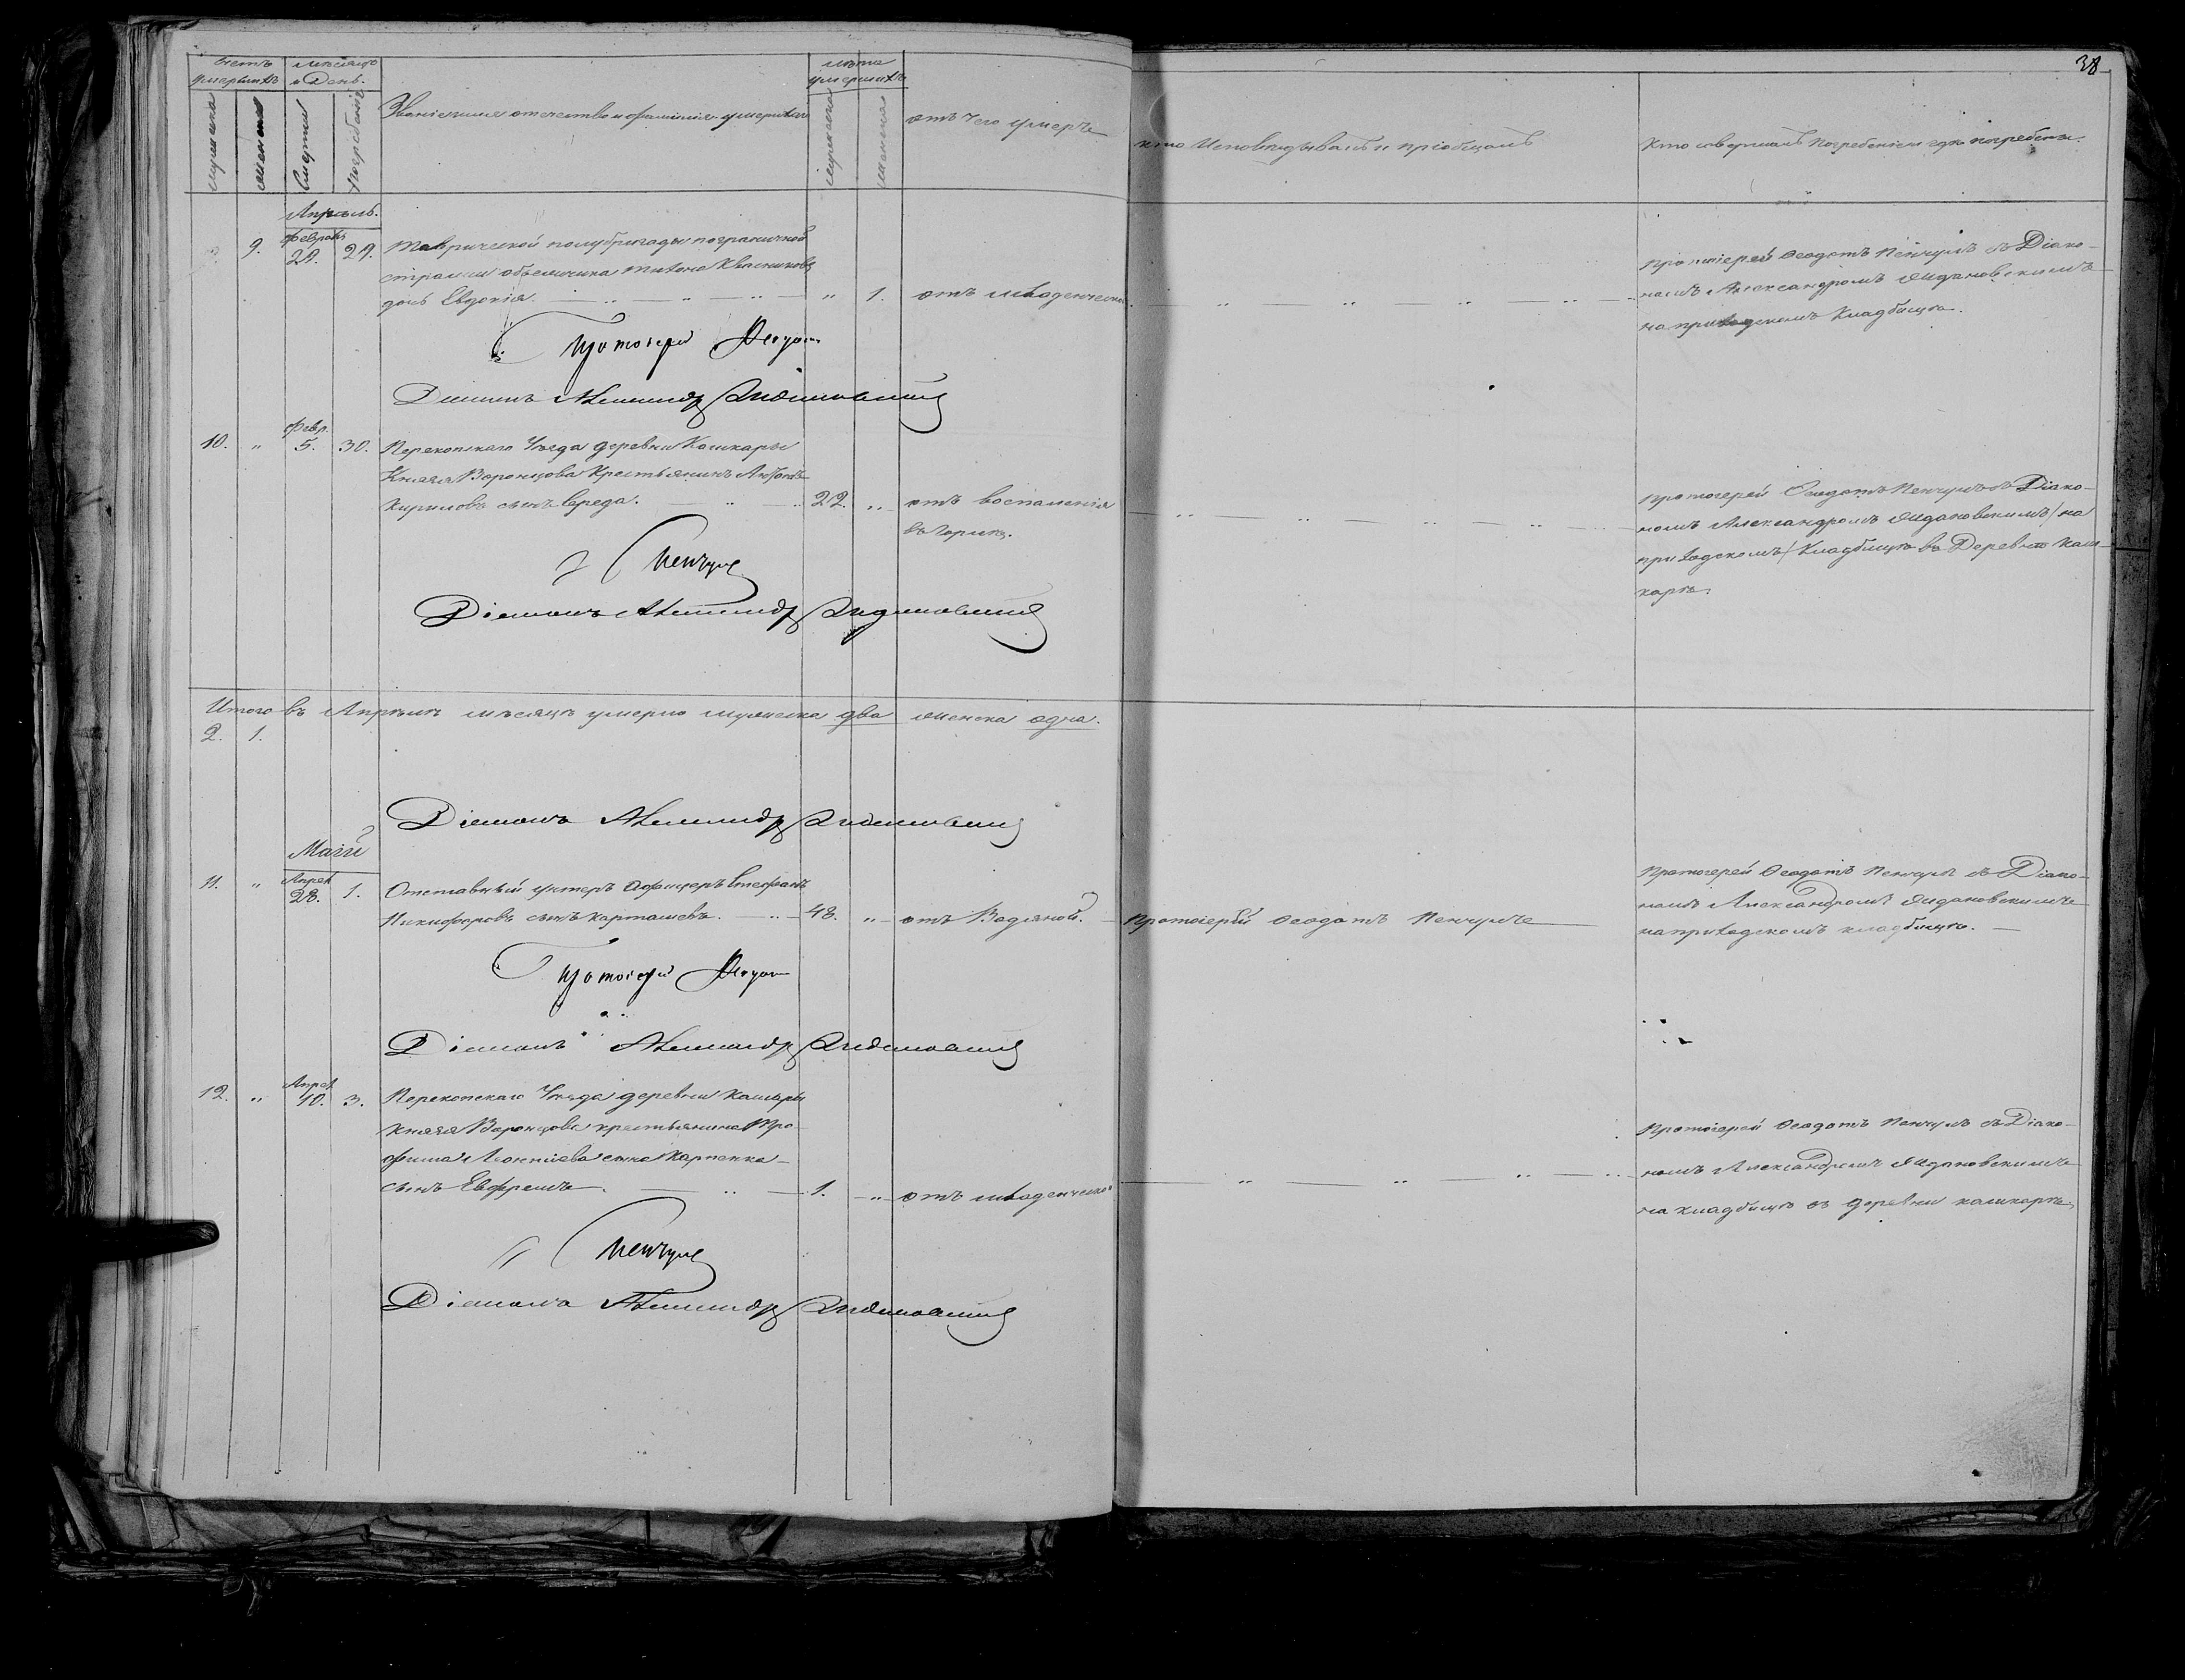 38
Счетъ умершихъ
Мѣсяцъ и День.
Званіе имя отечество и фамилія умершаго
Лѣта умершихъ
отъ чего умеръ
кто Исповѣдывалъ и пріобщалъ
Кто совершалъ погребеніе и гдѣ погребены.
мужеска
женска
смерти
погребенія
мужеска
женска
Апрель.
9.
Февраля
29.
29.
Таврической полубригады пограничной
стражи объезчика Тихона Квасникова
дочь Евдокія.
1.
отъ младенческой
Протоіерей Феодотъ Пенчулъ съ Діако-
номъ Александромъ Ждановскимъ
на приходскомъ Кладбищѣ.
Протоіерей Феодот
Діаконъ Александр Ждановский
10.
Февр.
5.
30.
Перекопскаго Уезда деревни Кашкары
Князя Воронцова Крестьянинъ Антонъ
Кириловъ сынъ Середа.
22.
отъ воспаленія
въ горлѣ.
Протоіерей Феодотъ Пенчулъ съ Діако-
номъ Александромъ Ждановскимъ на
приходскомъ Кладбищѣ въ Деревнѣ Каш-
карѣ.
Пенчулъ
Діаконъ Александр Ждановский
Итого въ Апрѣлѣ мѣсяцѣ умерло мужеска два женска одна.
2. 1.
Діаконъ Александр Ждановский
Маій
11.
Апрел
28.
1.
Отставный унтеръ Офицеръ Стефанъ
Никифоровъ сынъ Карташевъ.
48.
отъ Водяной.
Протоіерей Феодотъ Пенчулъ
Протоіерей Феодотъ Пенчулъ съ Діако-
номъ Александромъ Ждановскимъ
на приходскомъ кладбищѣ.
Протоіерей Феодот
Діаконъ Александр Ждановский
12.
Апрел
10.
3.
Перекопскаго Уезда деревни Кашкары
Князя Воронцова крестьянина Тро-
фима Леонтіева сына Карпенка
сынъ Евфремъ.
1.
отъ младенческой
Протоіерей Феодотъ Пенчулъ съ Діако-
номъ Александромъ Ждановскимъ
на кладбищѣ въ деревни кашкарѣ
Пенчулъ
Діаконъ Александр Ждановский